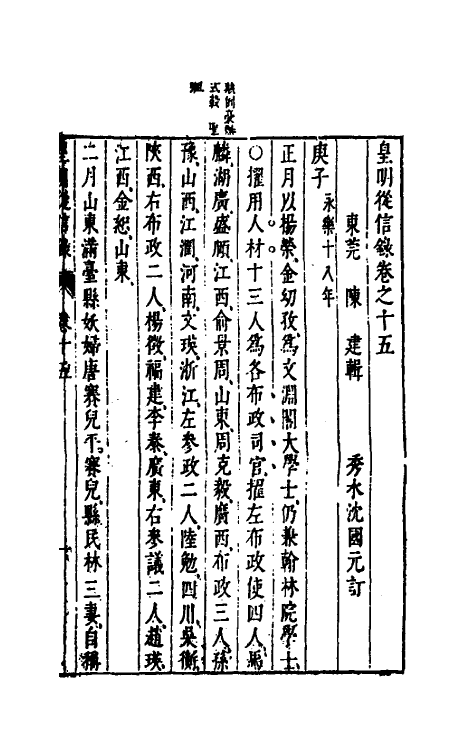 皇明從信錄卷之十五
東莞 陳 建輯 秀水沈國元訂
庚子 永樂十八年
正月以楊榮金幼孜爲文淵閣大學士仍兼翰林院學士
○擢用人材十三人爲各布政司官擢左布政使四人馬
麟湖廣盛頎江西俞景周山東周克毅廣西布政三人孫
豫山西江潤河南文瑛浙江左參政二人陸勉四川吳衡
陜西右布政二人楊徵福建李泰廣東右參議二人趙瑛
江西金恕山東
二月山東蒲臺縣妖婦唐賽兒平賽兒縣民林三妻自稱
皇明從信錄 卷十五